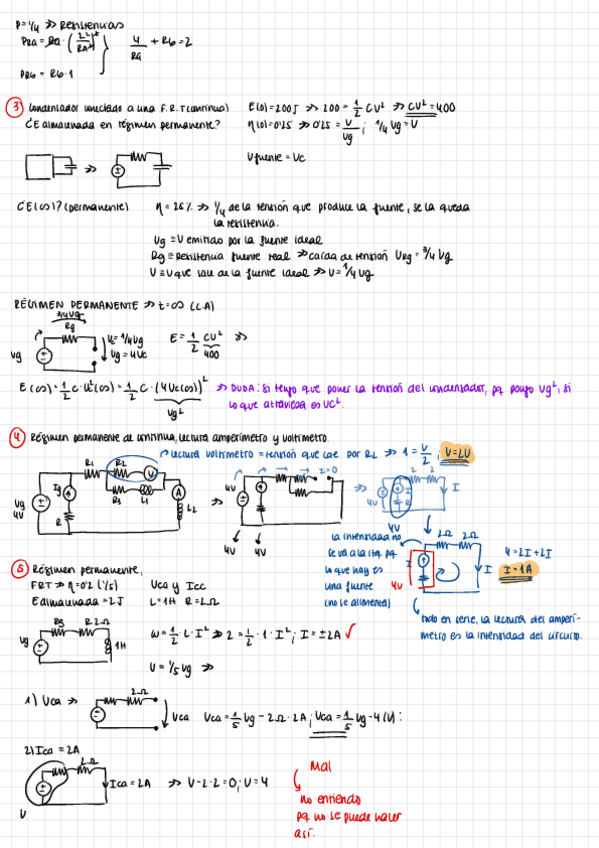 P=1/4 >> Resistencias
PRA = RA · (2/RA)²
4/RA + Rb = 2
PRb = Rb·1
③ Condensador conectado a una F.R.T (continua)
¿E almacenada en régimen permanente?
E(0)=200J >> 200 = 1/2 CU² >> CU²=400
η(0)=0'25 >> 0'25 = V/Vg ; 1/4 Vg = V
V fuente = Vc
¿E(∞)? (permanente)
η = 25% >> 1/4 de la tensión que produce la fuente, se la queda
la resistencia.
Vg = V emitido por la fuente ideal
Rg = Resistencia fuente real >> caída de tensión URg = 3/4 Vg
V = V que sale de la fuente ideal >> V = 1/4 Vg
RÉGIMEN PERMANENTE >> t=∞ (C.A)
3/4 Vg
Rg
Vg
Uc = 1/4 Vg
Vg = 4Uc
E = 1/2 CU² >>
400
E(∞) = 1/2 C · Uc²(∞) = 1/2 C · (4Uc(∞))²
Vg²
>> DUDA: Si tengo que poner la tensión del condensador, pq pongo Vg², si
lo que atraviesa es UC².
④ Régimen permanente de continua, lectura amperímetro y voltímetro.
lectura voltímetro = tensión que cae por R2 >> 1 = V/2 ; V=2V
R1
R2
V
Ig
R3
L1
A
Vg
4V
R
L2
4V
4V
4V
Z=0
2
2
4V
I
R
I
4V
la intensidad no
se va a la izq pq
lo que hay es
una fuente
(no se alimenta)
4V
2Ω
2Ω
I
I
4V
4 = 2I+2I
I=1A
todo en serie, la lectura del amperí-
metro es la intensidad del circuito.
⑤ Régimen permanente,
FRT >> η=0'2 (1/5)
Vca y Icc
E almacenada = 2J
L=1H R=2Ω
Rg
R 2Ω
Vg
1H
W = 1/2 · L · I² >> 2 = 1/2 · 1 · I² ; I = ±2A ✓
V = 1/5 Vg >>
1) Vca >>
2Ω
Vca
Vca = 1/5 Vg - 2Ω · 2A ; Vca = 1/5 Vg - 4 (V) :
2) Ica = 2A
2Ω
Ica = 2A
>> V-2·2=0; V=4
V
Mal
no entiendo
pq no se puede hacer
así.